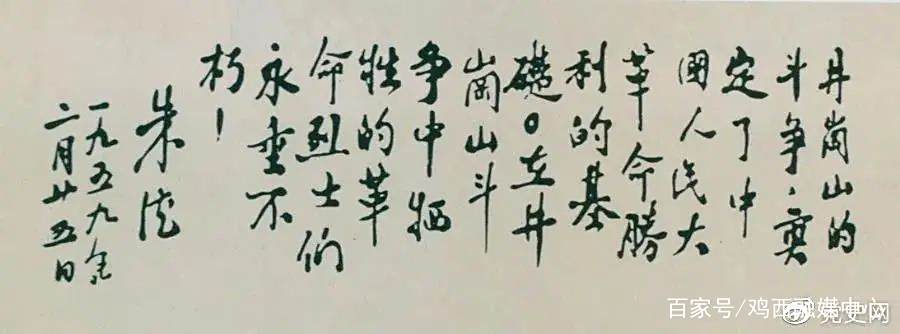 井崗山的
斗争，奠
定了中
國人民大
革命勝
利的基
礎。在井
崗山斗
争中牺
牲的革
命烈士们
永垂不
朽！
朱德
一九五九年
二月廿五日
百家号/鸡西融媒中心
党史网